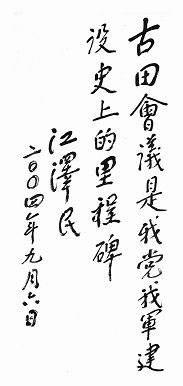 古田會議是我党我軍建
设史上的里程碑
江澤民
二〇〇四年九月六日